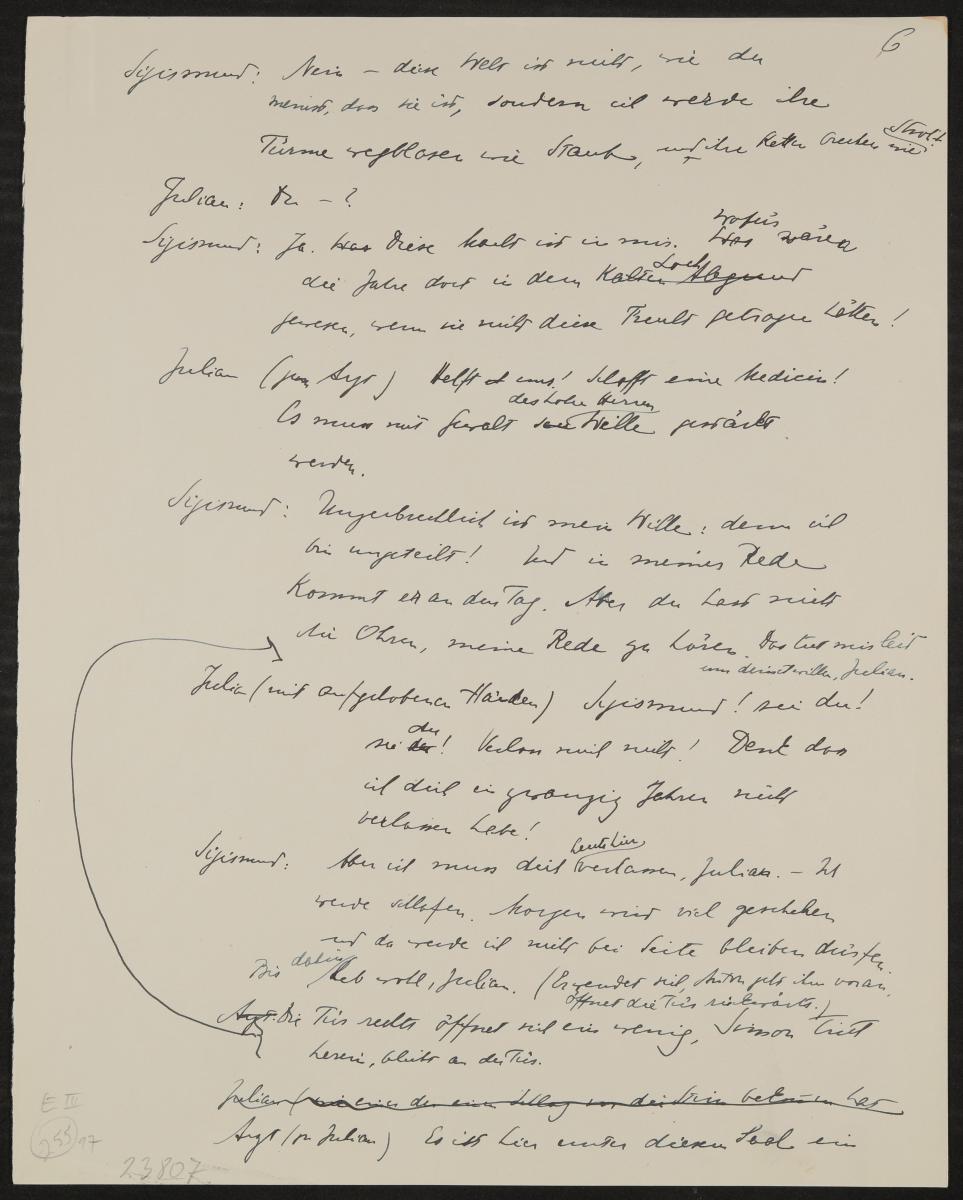 6
Sigismund: Nein – diese Welt ist nicht, wie du
meinst, dass sie ist, sondern ich werde ihre
Türme wegblasen wie Staub, und ihre Ketten brechen wie Stroh!
Julian: Du – ?
Sigismund: Ja. Diese Macht ist in mir. Wofür
Was wären
die Jahre dort in dem Kalten Abgrund
Loch
gewesen, wenn sie nicht diese Frucht getragen hätten!
Julian (zum Arzt) Helft uns! Schafft eine Medicin!
des hohen Herren
Es muss mit Gewalt sein Wille gestärkt
werden.
Sigismund: Ungebrechlich ist mein Wille: denn ich
bin ungeteilt! Und in meiner Rede
Kommt er an den Tag. Aber du hast nicht
die Ohren, meine Rede zu hören. Das tut mir leid
um deinetwillen, Julian.
Julian (mit aufgehobenen Händen) Sigismund! sei du!
sei du! Verlass mich nicht! Denk dass
ich dich in zwanzig Jahren nicht
verlassen habe!
Sigismund: Aber ich muss dich verlassen, Julian. – Ich
werde schlafen. Morgen wird viel geschehen
und da werde ich nicht bei Seite bleiben dürfen.
Bis dahin leb wohl, Julian. (Er wendet sich, Anton geht ihm voran,
öffnet die Tür rückwärts.)
Arzt: Die Tür rechts öffnet sich ein wenig, Simon tritt
herein, bleibt an der Tür.
Julian (wie einer der einen Schlag vor die Stirn bekommen hat
Arzt (zu Julian) Es ist hier unter diesem Saal ein
E III
97
23807